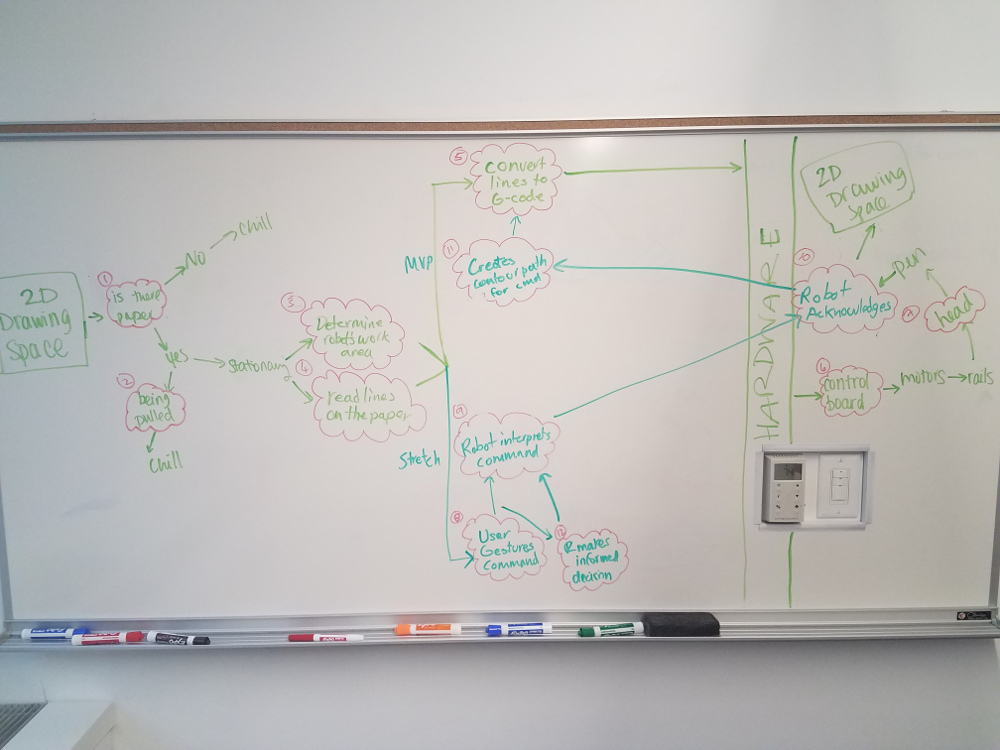 2D
Drawing
Space
1
is there
paper
No
Chill
yes
2
being
pulled
Chill
Stationary
3
Determine
robot's work
area
4
read lines
on the paper
MVP
Stretch
5
Convert
lines to
G-code
11
Creates
contour path
for cmd
9
Robot interprets
command
8
User
Gestures
command
12
R makes
informed
decision
HARDWARE
2D
Drawing
Space
10
Robot
Acknowledges
pen
head
6
control
board
motors
rails